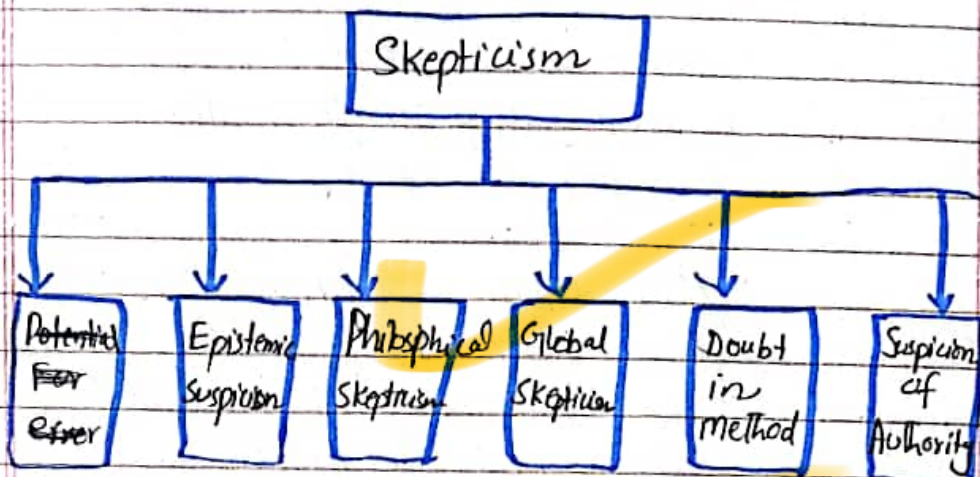 Skepticism
Potential
For
error
Epistemic
suspicion
Philosphical
Skeptism
Global
Skepticism
Doubt
in
method
Suspicion
of
Authority